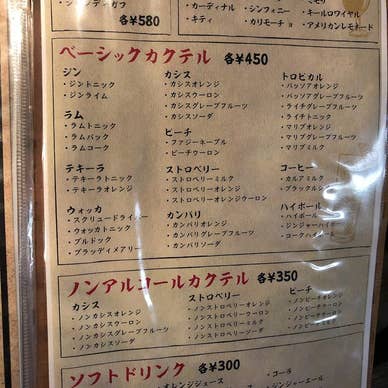 各¥580
・カーディナル
・キティ
・シンフォニー
・カリモーチョ
・キールロワイヤル
・アメリカンレモネード
ベーシックカクテル 各¥450
ジン
・ジントニック
・ジンライム
ラム
・ラムトニック
・ラムバック
・ラムコーク
テキーラ
・テキーラトニック
・テキーラオレンジ
ウォッカ
・スクリュードライバー
・ウォッカトニック
・ブルドック
・ブラッディメアリー
カシス
・カシスオレンジ
・カシスウーロン
・カシスグレープフルーツ
・カシスソーダ
ピーチ
・ファジーネーブル
・ピーチウーロン
ストロベリー
・ストロベリーミルク
・ストロベリーオレンジ
・ストロベリーオレンジウーロン
カンパリ
・カンパリオレンジ
・カンパリグレープフルーツ
・カンパリソーダ
トロピカル
・パッソアオレンジ
・パッソアグレープフルーツ
・ライチグレープフルーツ
・ライチトニック
・マリブオレンジ
・マリブグレープフルーツ
・マリブミルク
コーヒー
・カルアミルク
・ブラックルシ
ハイボール
・ハイボール
・ジンジャーハイ
・コークハイボール
ノンアルコールカクテル 各¥350
カシス
・ノンカシスオレンジ
・ノンカシスウーロン
・ノンカシスグレープフルーツ
・ノンカシスソーダ
ストロベリー
・ノンストロベリーオレンジ
・ノンストロベリーウーロン
・ノンストロベリーミルク
・ノンストロベリーソーダ
ピーチ
・ノンピーチオレンジ
・ノンピーチウーロン
・ノンピーチミルク
・ノンピーチソーダ
ソフトドリンク 各¥300
オレンジジュース
・コーラ
・ジンジャーエール